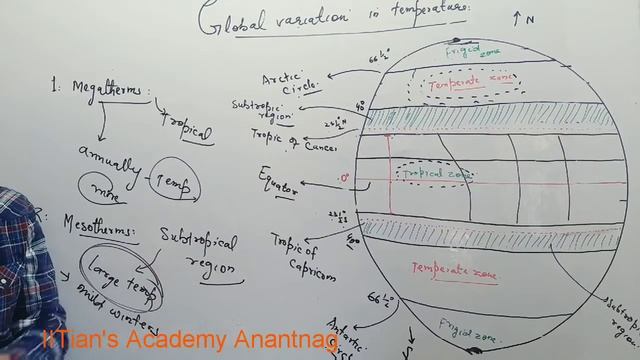 Global variation in temperature:
↑ N
1: Megatherms:
Tropical
annually
more
Temp
2: Mesotherms:
Subtropical
region
large temp
mild winters
Arctic
Circle
66 ½°
Subtropic
region
40°
Tropic of Cancer
23 ½° N
Equator
0°
Tropic of
Capricorn
23 ½° S
40°
66 ½°
Antartic
S
Frigid
zone
Temperate zone
Tropical zone
Temperate zone
Frigid zone.
Subtropic
region
IITian's Academy Anantnag